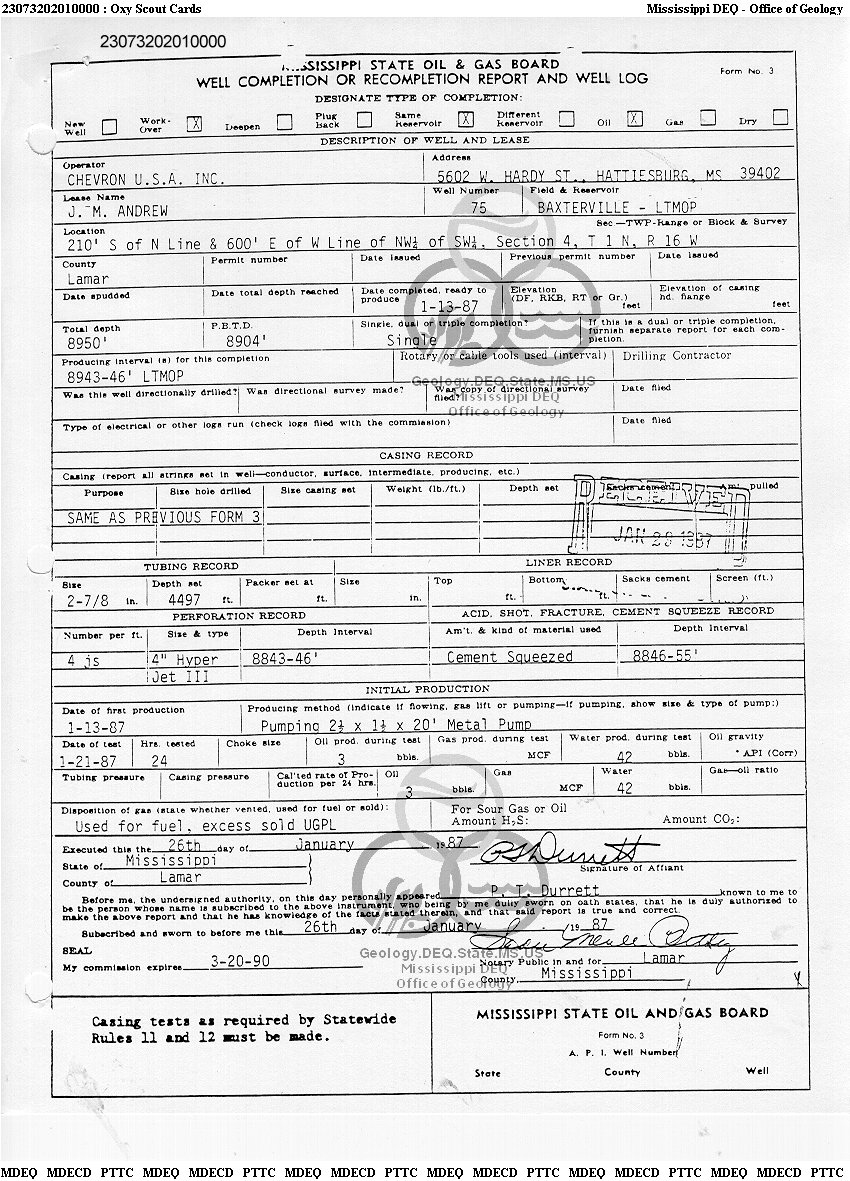 23073202010000 : Oxy Scout Cards Mississippi DEQ - Office of Geology
23073202010000
MISSISSIPPI STATE OIL & GAS BOARD
WELL COMPLETION OR RECOMPLETION REPORT AND WELL LOG Form No. 3
DESIGNATE TYPE OF COMPLETION:
New Well Work-Over X Deepen Plug Back Same Reservoir X Different Reservoir Oil X Gas Dry
DESCRIPTION OF WELL AND LEASE
Operator Address
CHEVRON U.S.A. INC. 5602 W. HARDY ST., HATTIESBURG, MS 39402
Lease Name Well Number Field & Reservoir
J. M. ANDREW 75 BAXTERVILLE - LTMOP
Location Sec.—TWP-Range or Block & Survey
210' S of N Line & 600' E of W Line of NW¼ of SW¼, Section 4, T 1 N, R 16 W
County Permit number Date issued Previous permit number Date issued
Lamar
Date spudded Date total depth reached Date completed, ready to produce 1-13-87 Elevation (DF, RKB, RT or Gr.) feet Elevation of casing hd. flange feet
Total depth P.B.T.D. Single, dual or triple completion? If this is a dual or triple completion, furnish separate report for each completion.
8950' 8904' Single
Producing interval (s) for this completion Rotary or cable tools used (interval) Drilling Contractor
8943-46' LTMOP
Geology.DEQ.State.MS.US
Mississippi DEQ
Office of Geology
Was this well directionally drilled? Was directional survey made? Was copy of directional survey filed? Date filed
Type of electrical or other logs run (check logs filed with the commission) Date filed
CASING RECORD
Casing (report all strings set in well—conductor, surface, intermediate, producing, etc.)
Purpose Size hole drilled Size casing set Weight (lb./ft.) Depth set Sacks cement Amt. pulled
SAME AS PREVIOUS FORM 3
RECEIVED
JAN 28 1987
TUBING RECORD LINER RECORD
Size Depth set Packer set at Size Top Bottom Sacks cement Screen (ft.)
2-7/8 in. 4497 ft. ft. in. ft. ft.
PERFORATION RECORD ACID, SHOT, FRACTURE, CEMENT SQUEEZE RECORD
Number per ft. Size & type Depth Interval Am't. & kind of material used Depth Interval
4 js 4" Hyper Jet III 8843-46' Cement Squeezed 8846-55'
INITIAL PRODUCTION
Date of first production Producing method (indicate if flowing, gas lift or pumping—if pumping, show size & type of pump:)
1-13-87 Pumping 2½ x 1½ x 20' Metal Pump
Date of test Hrs. tested Choke size Oil prod. during test Gas prod. during test Water prod. during test Oil gravity
1-21-87 24 3 bbls. MCF 42 bbls. ° API (Corr)
Tubing pressure Casing pressure Cal'ted rate of Production per 24 hrs. Oil Gas Water Gas—oil ratio
3 bbls. MCF 42 bbls.
Disposition of gas (state whether vented, used for fuel or sold): For Sour Gas or Oil
Used for fuel, excess sold UGPL Amount H₂S: Amount CO₂:
Executed this the 26th day of January 1987 P T Durrett
State of Mississippi Signature of Affiant
County of Lamar
Before me, the undersigned authority, on this day personally appeared P. T. Durrett known to me to
be the person whose name is subscribed to the above instrument, who being by me duly sworn on oath states, that he is duly authorized to
make the above report and that he has knowledge of the facts stated therein, and that said report is true and correct.
Subscribed and sworn to before me this 26th day of January, 1987
SEAL
My commission expires 3-20-90 Notary Public in and for Lamar
County, Mississippi
Geology.DEQ.State.MS.US
Mississippi DEQ
Office of Geology
Casing tests as required by Statewide
Rules 11 and 12 must be made.
MISSISSIPPI STATE OIL AND GAS BOARD
Form No. 3
A. P. I. Well Number
State County Well
MDEQ MDECD PTTC MDEQ MDECD PTTC MDEQ MDECD PTTC MDEQ MDECD PTTC MDEQ MDECD PTTC MDEQ MDECD PTTC